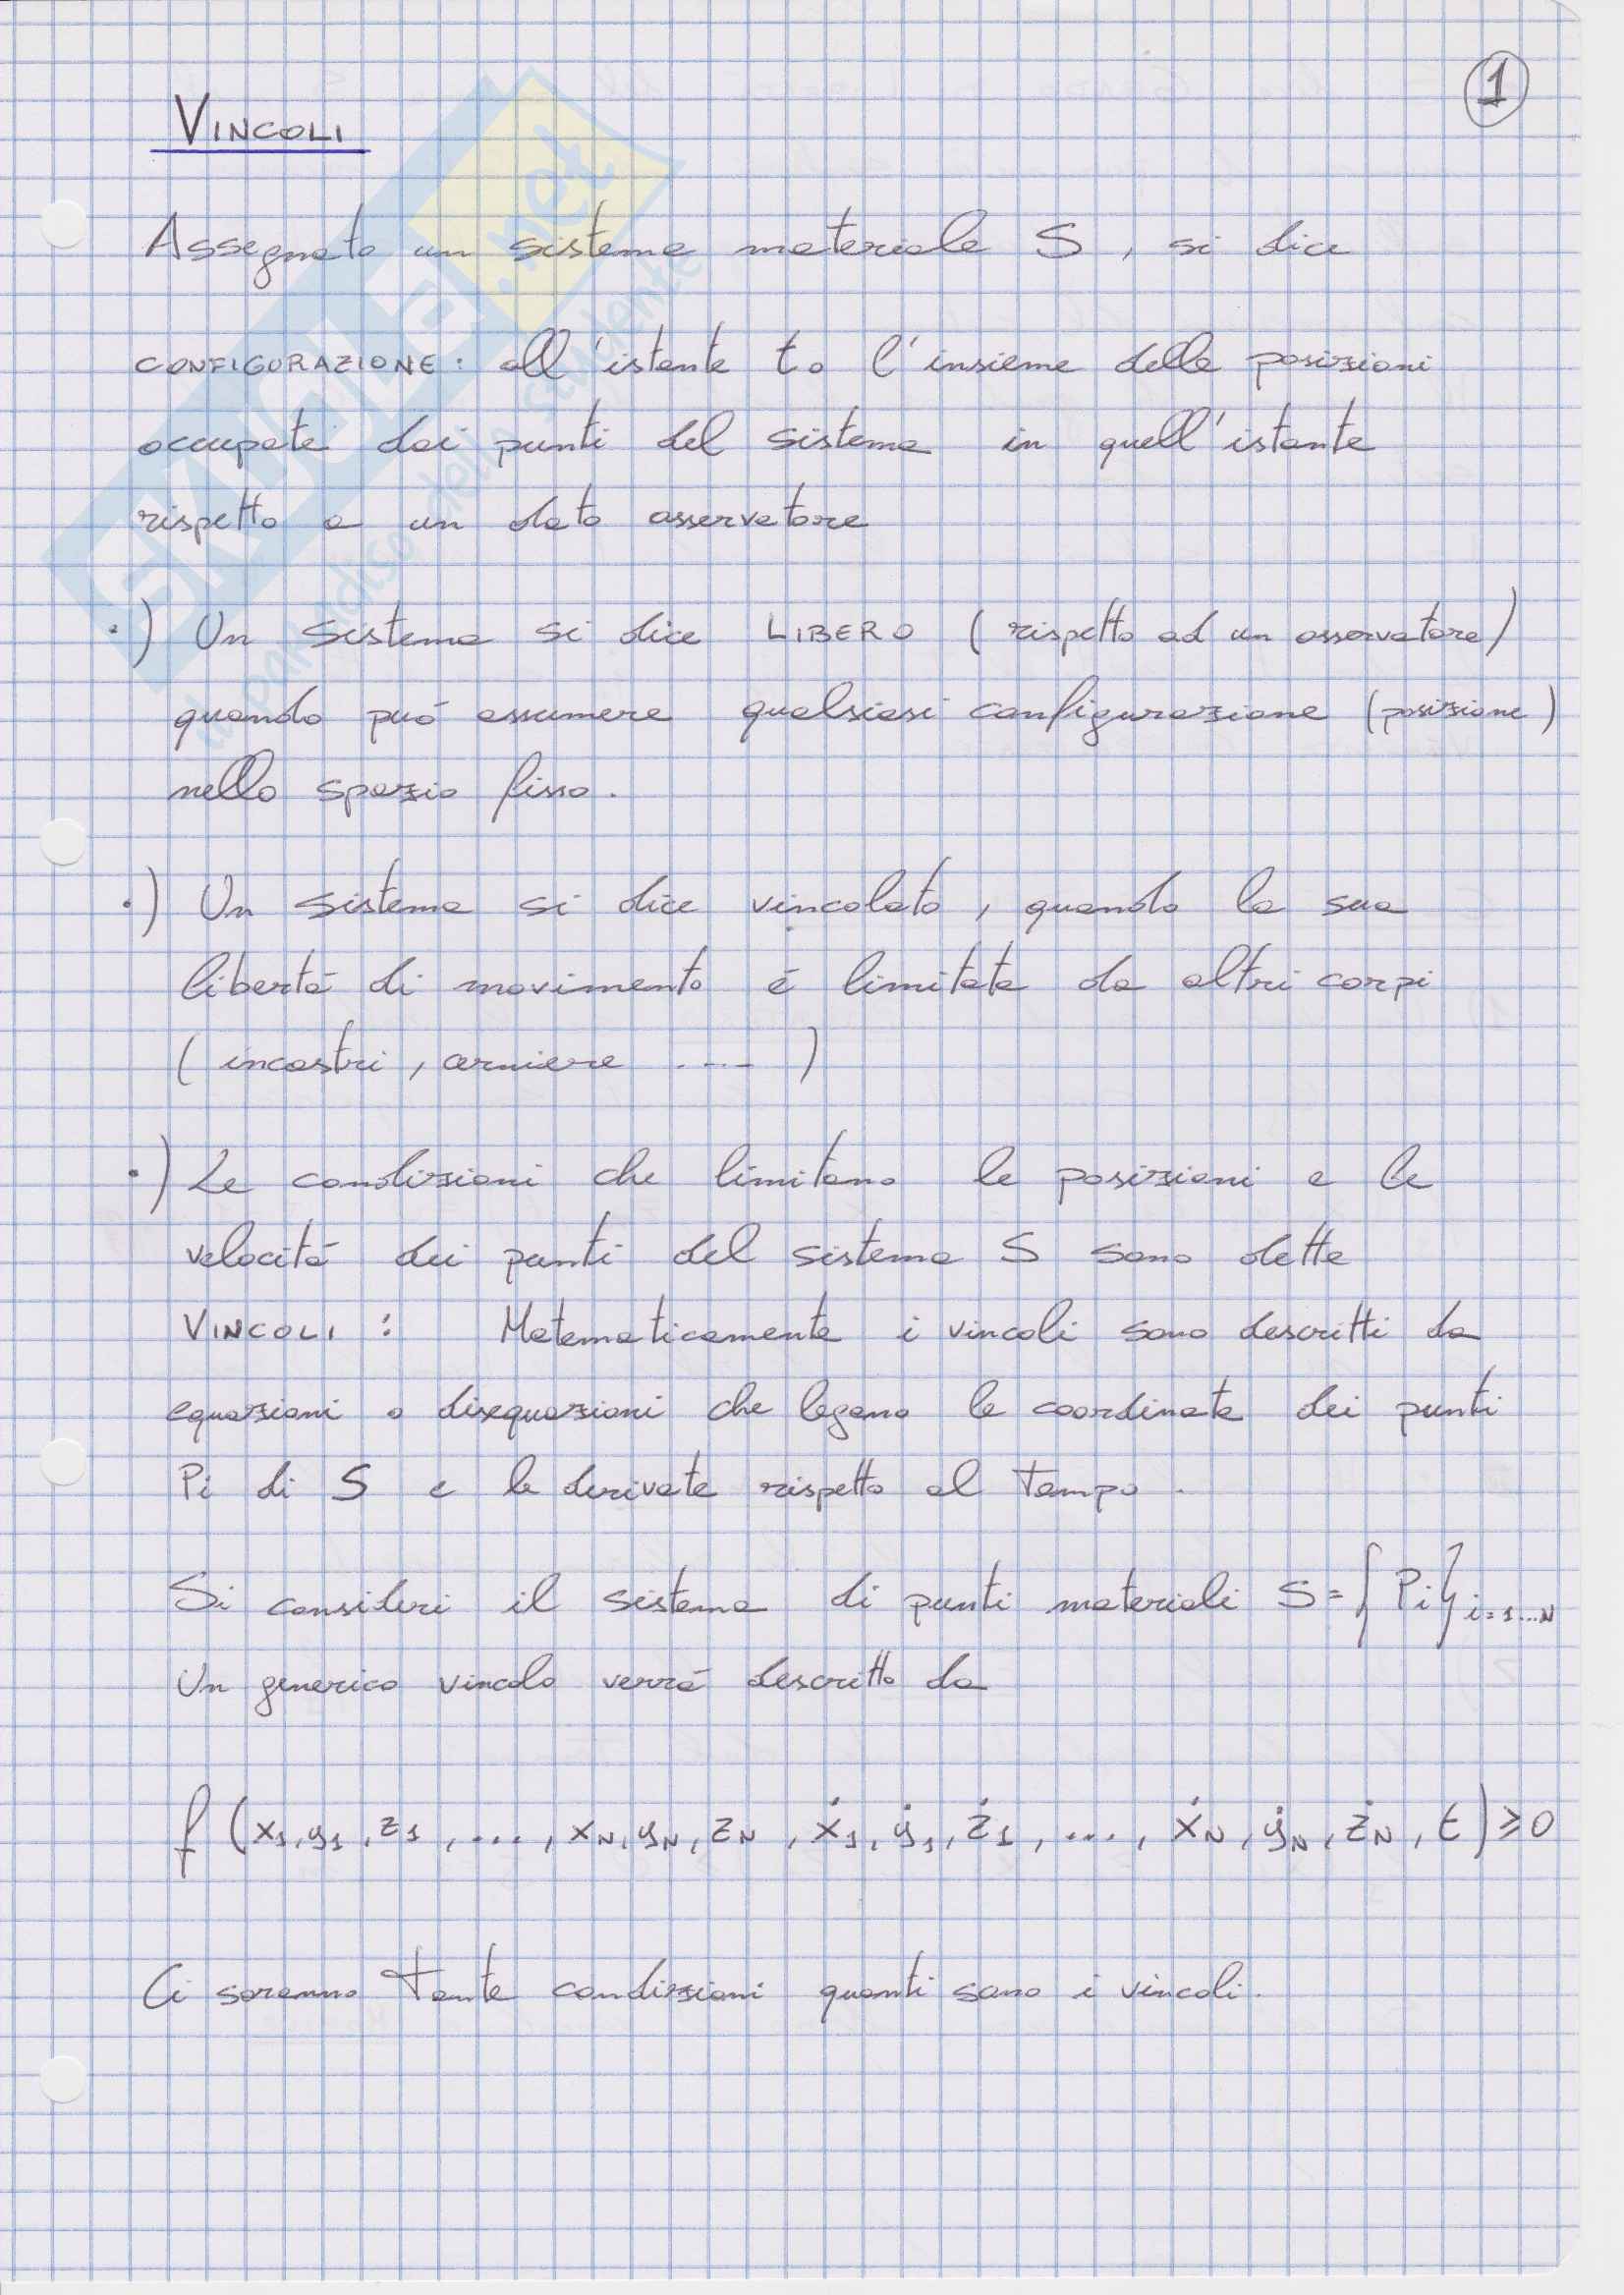 1
VINCOLI
Assegnato un sistema materiale S, si dice
CONFIGURAZIONE: all'istante to l'insieme delle posizioni
occupate dai punti del sistema in quell'istante
rispetto a un dato osservatore
·) Un sistema si dice LIBERO (rispetto ad un osservatore)
quando puó assumere qualsiasi configurazione (posizione)
nello spazio fisso.
·) Un sistema si dice vincolato, quando la sua
libertá di movimento é limitata da altri corpi
(incastri, cerniere ....)
·) Le condizioni che limitano le posizioni e le
velocitá dei punti del sistema S sono dette
VINCOLI: Matematicamente i vincoli sono descritti da
equazioni o disequazioni che legano le coordinate dei punti
Pi di S e le derivate rispetto al tempo.
Si consideri il sistema di punti materiali S={Pi}i=1...N
Un generico vincolo verrá descritto da
f (x1, y1, z1, ...., xN, yN, zN, ẋ1, ẏ1, ż1, ..., ẋN, ẏN, żN, t) ≥ 0
Ci saranno tante condizioni quanti sono i vincoli.
SKUOLA.net